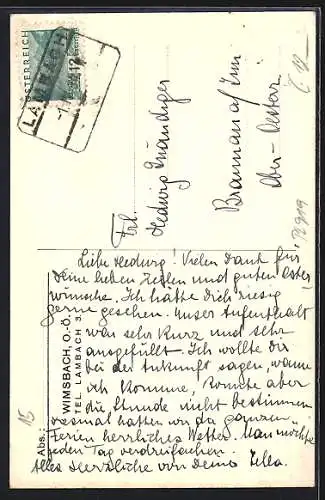 ÖSTERREICH
LAMBACH
Frl.
Hedwig
Braunau a/Inn
Ober-Oesterr.
Liebe Hedwig! Vielen Dank für
Deine lieben Zeilen und guten Oster
wünsche. Ich hätte Dich riesig
gerne gesehen. Unser Aufenthalt
war sehr kurz und sehr
ausgefüllt. Ich wollte dir
bei der Ankunft sagen, wann
ich komme, konnte aber
die Stunde nicht bestimmen.
Diesmal hatten wir die ganzen
Ferien herrliches Wetter. Man möchte
jeden Tag verdreifachen.
Alles Herzliche von Deine Ella.
Abs.:
WIMSBACH, O.-Ö.
TEL. LAMBACH 3.
15